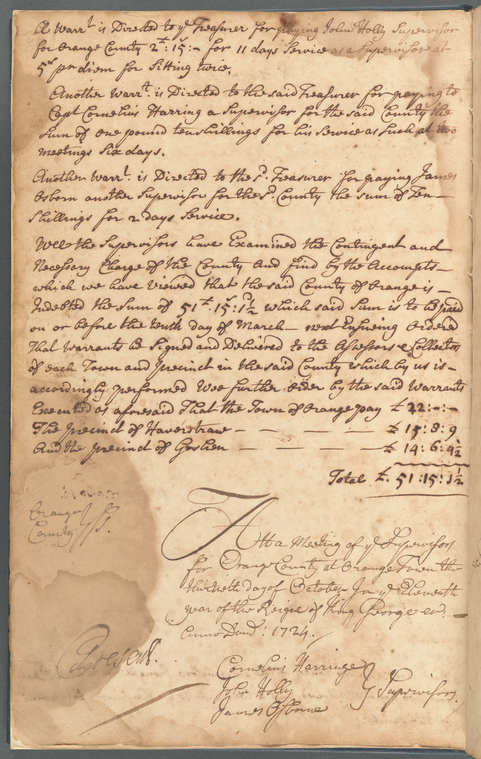 A Warrt. is Directed to ye Treasurer for paying John Holly Supervisor
for Orange County 2£:15:- for 11 days Service as a Supervisor at
5s pr diem for Sitting twice.
Another Warrt. is Directed to the said Treasurer for paying to
Capt Cornelius Harring a Supervisor for the said County the
Sum of one pound ten shillings for his Service as Such at two
meetings Six days.
Another Warrt. is Directed to the sd. Treasurer for paying James
Osborn another Supervisor for the sd. County the sum of Ten-
Shillings for 2 days Service.
Wee the Supervisors have Examined the Contingent and
Necessary Charge of the County And find by the Accompts-
which we have Viewed that the said County of Orange is-
Indebted the Sum of 51£:15s:1½ which said Sum is to be paid
on or before the tenth day of March- next Ensueing Ordered
That warrants be Signed and Delivered to the Assessors & Collectors
of each Town and precinct in the said County which by us is-
accordingly performed Wee further order by the said Warrants
Executed as aforesaid That the Town of Orange pay £ 22:-:-
The precinct of Haverstraw - - - - £ 15:8:9
And the precinct of Goshen - - - - £ 14:6:4½
Total £. 51:15:1½
Orange
County Ss.
Att a Meeting of ye Supervisors
for Orange County at Orange Town the
day of October In ye Eleventh
year of the Reigne of King George &c.
Anno Dom: 1724.
Present.
Cornelius Harringe
John Holly
James Osborne
Supervisors.